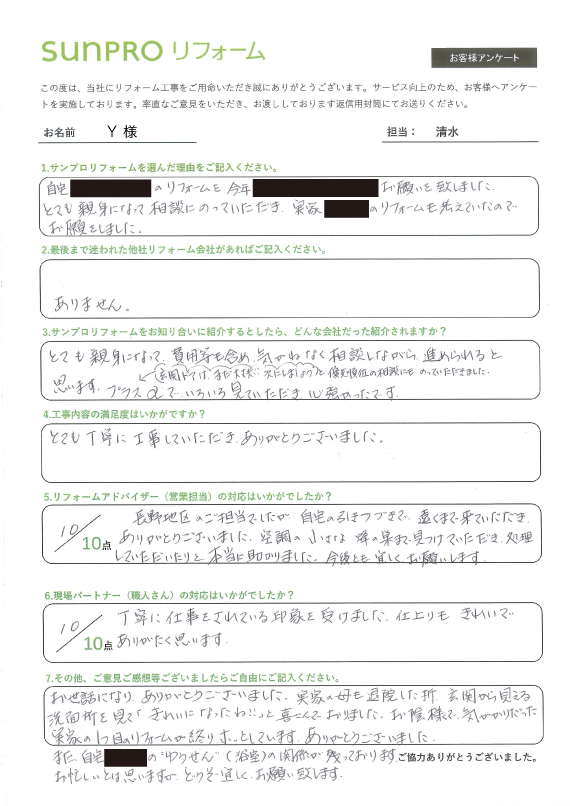 sunPRO リフォーム
お客様アンケート
この度は、当社にリフォーム工事をご用命いただき誠にありがとうございます。サービス向上のため、お客様へアンケー
トを実施しております。率直なご意見をいただき、お渡ししております返信用封筒にてお送りください。
お名前 Y 様 担当： 清水
1.サンプロリフォームを選んだ理由をご記入ください。
自宅 のリフォームを 今年 お願いを致しました。
とても親身になって相談にのっていただき、実家 のリフォームも考えていたので
お願をしました。
2.最後まで迷われた他社リフォーム会社があればご記入ください。
ありません。
3.サンプロリフォームをお知り合いに紹介するとしたら、どんな会社だった紹介されますか？
とても親身になって、費用等も含め、気がねなく相談しながら進められると
玄関ドアは、まだ大丈夫!! 次にしましょうと優先順位の相談にものっていただきました。
思います。プラスαで、いろいろ見ていただき心強かったです。
4.工事内容の満足度はいかがですか？
とても丁寧に工事していただき、ありがとうございました。
5.リフォームアドバイザー（営業担当）の対応はいかがでしたか？
長野地区のご担当でしたが、自宅のるすつづきで、遠くまで来ていただき、
10/10点 ありがとうございました。空調の小さな蜂の巣まで見つけていただき、処理
していただいたりと、本当に助かりました。今後とも宜しくお願いします。
6.現場パートナー（職人さん）の対応はいかがでしたか？
丁寧に仕事をされている印象を受けました。仕上りもきれいで
10/10点 ありがたく思います。
7.その他、ご意見ご感想等ございましたらご自由にご記入ください。
お世話になり、ありがとうございました。実家の母も退院した折、玄関から見える
洗面所を見て「きれいになったね!!」と喜こんでおりました。お陰様で、気がかりだった
実家の1つ目のリフォームが終りホッとしています。ありがとうございました。
また、自宅 の （浴室）の関係が残っております。ご協力ありがとうございました。
お忙しいとは思いますが、どうぞ宜しくお願い致します。